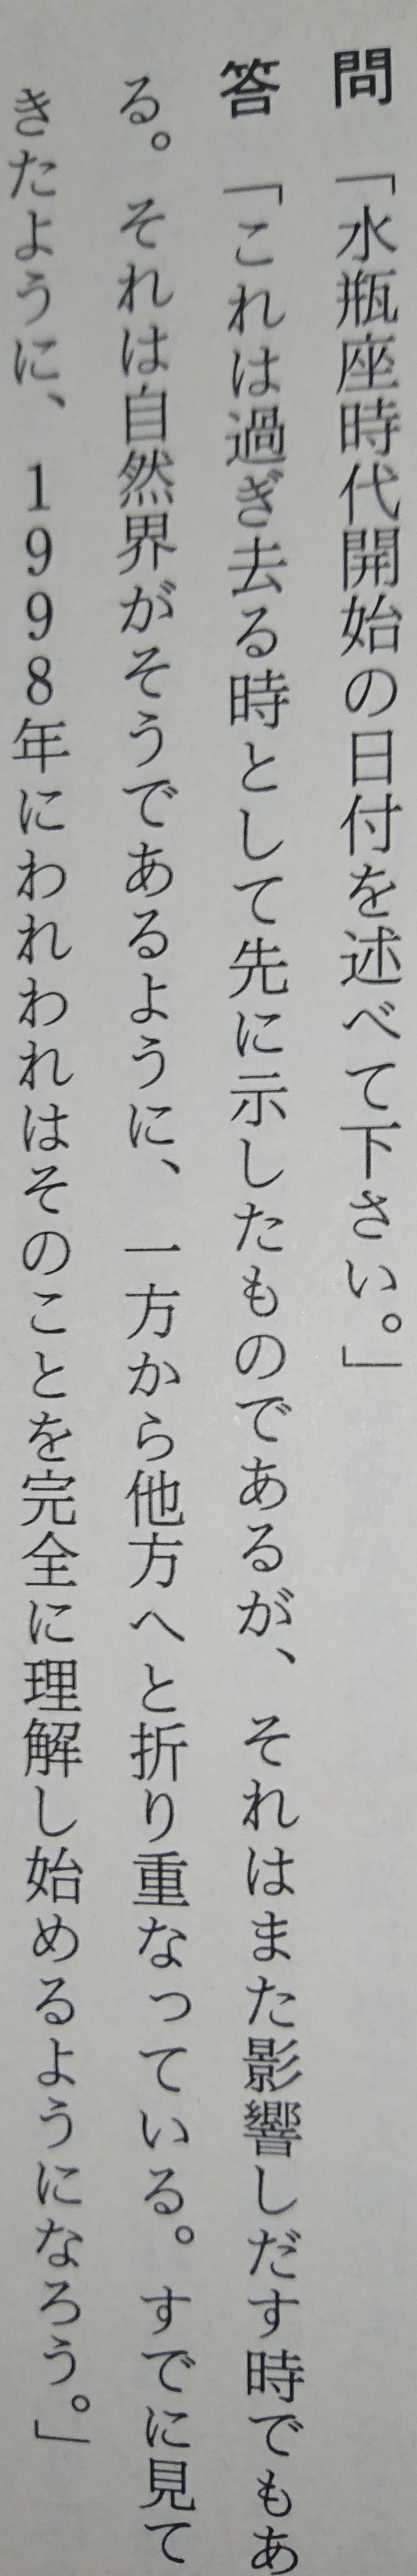 問 「水瓶座時代開始の日付を述べて下さい。」
答 「これは過ぎ去る時として先に示したものであるが、それはまた影響しだす時でもあ
る。それは自然界がそうであるように、一方から他方へと折り重なっている。すでに見て
きたように、1998年にわれわれはそのことを完全に理解し始めるようになろう。」